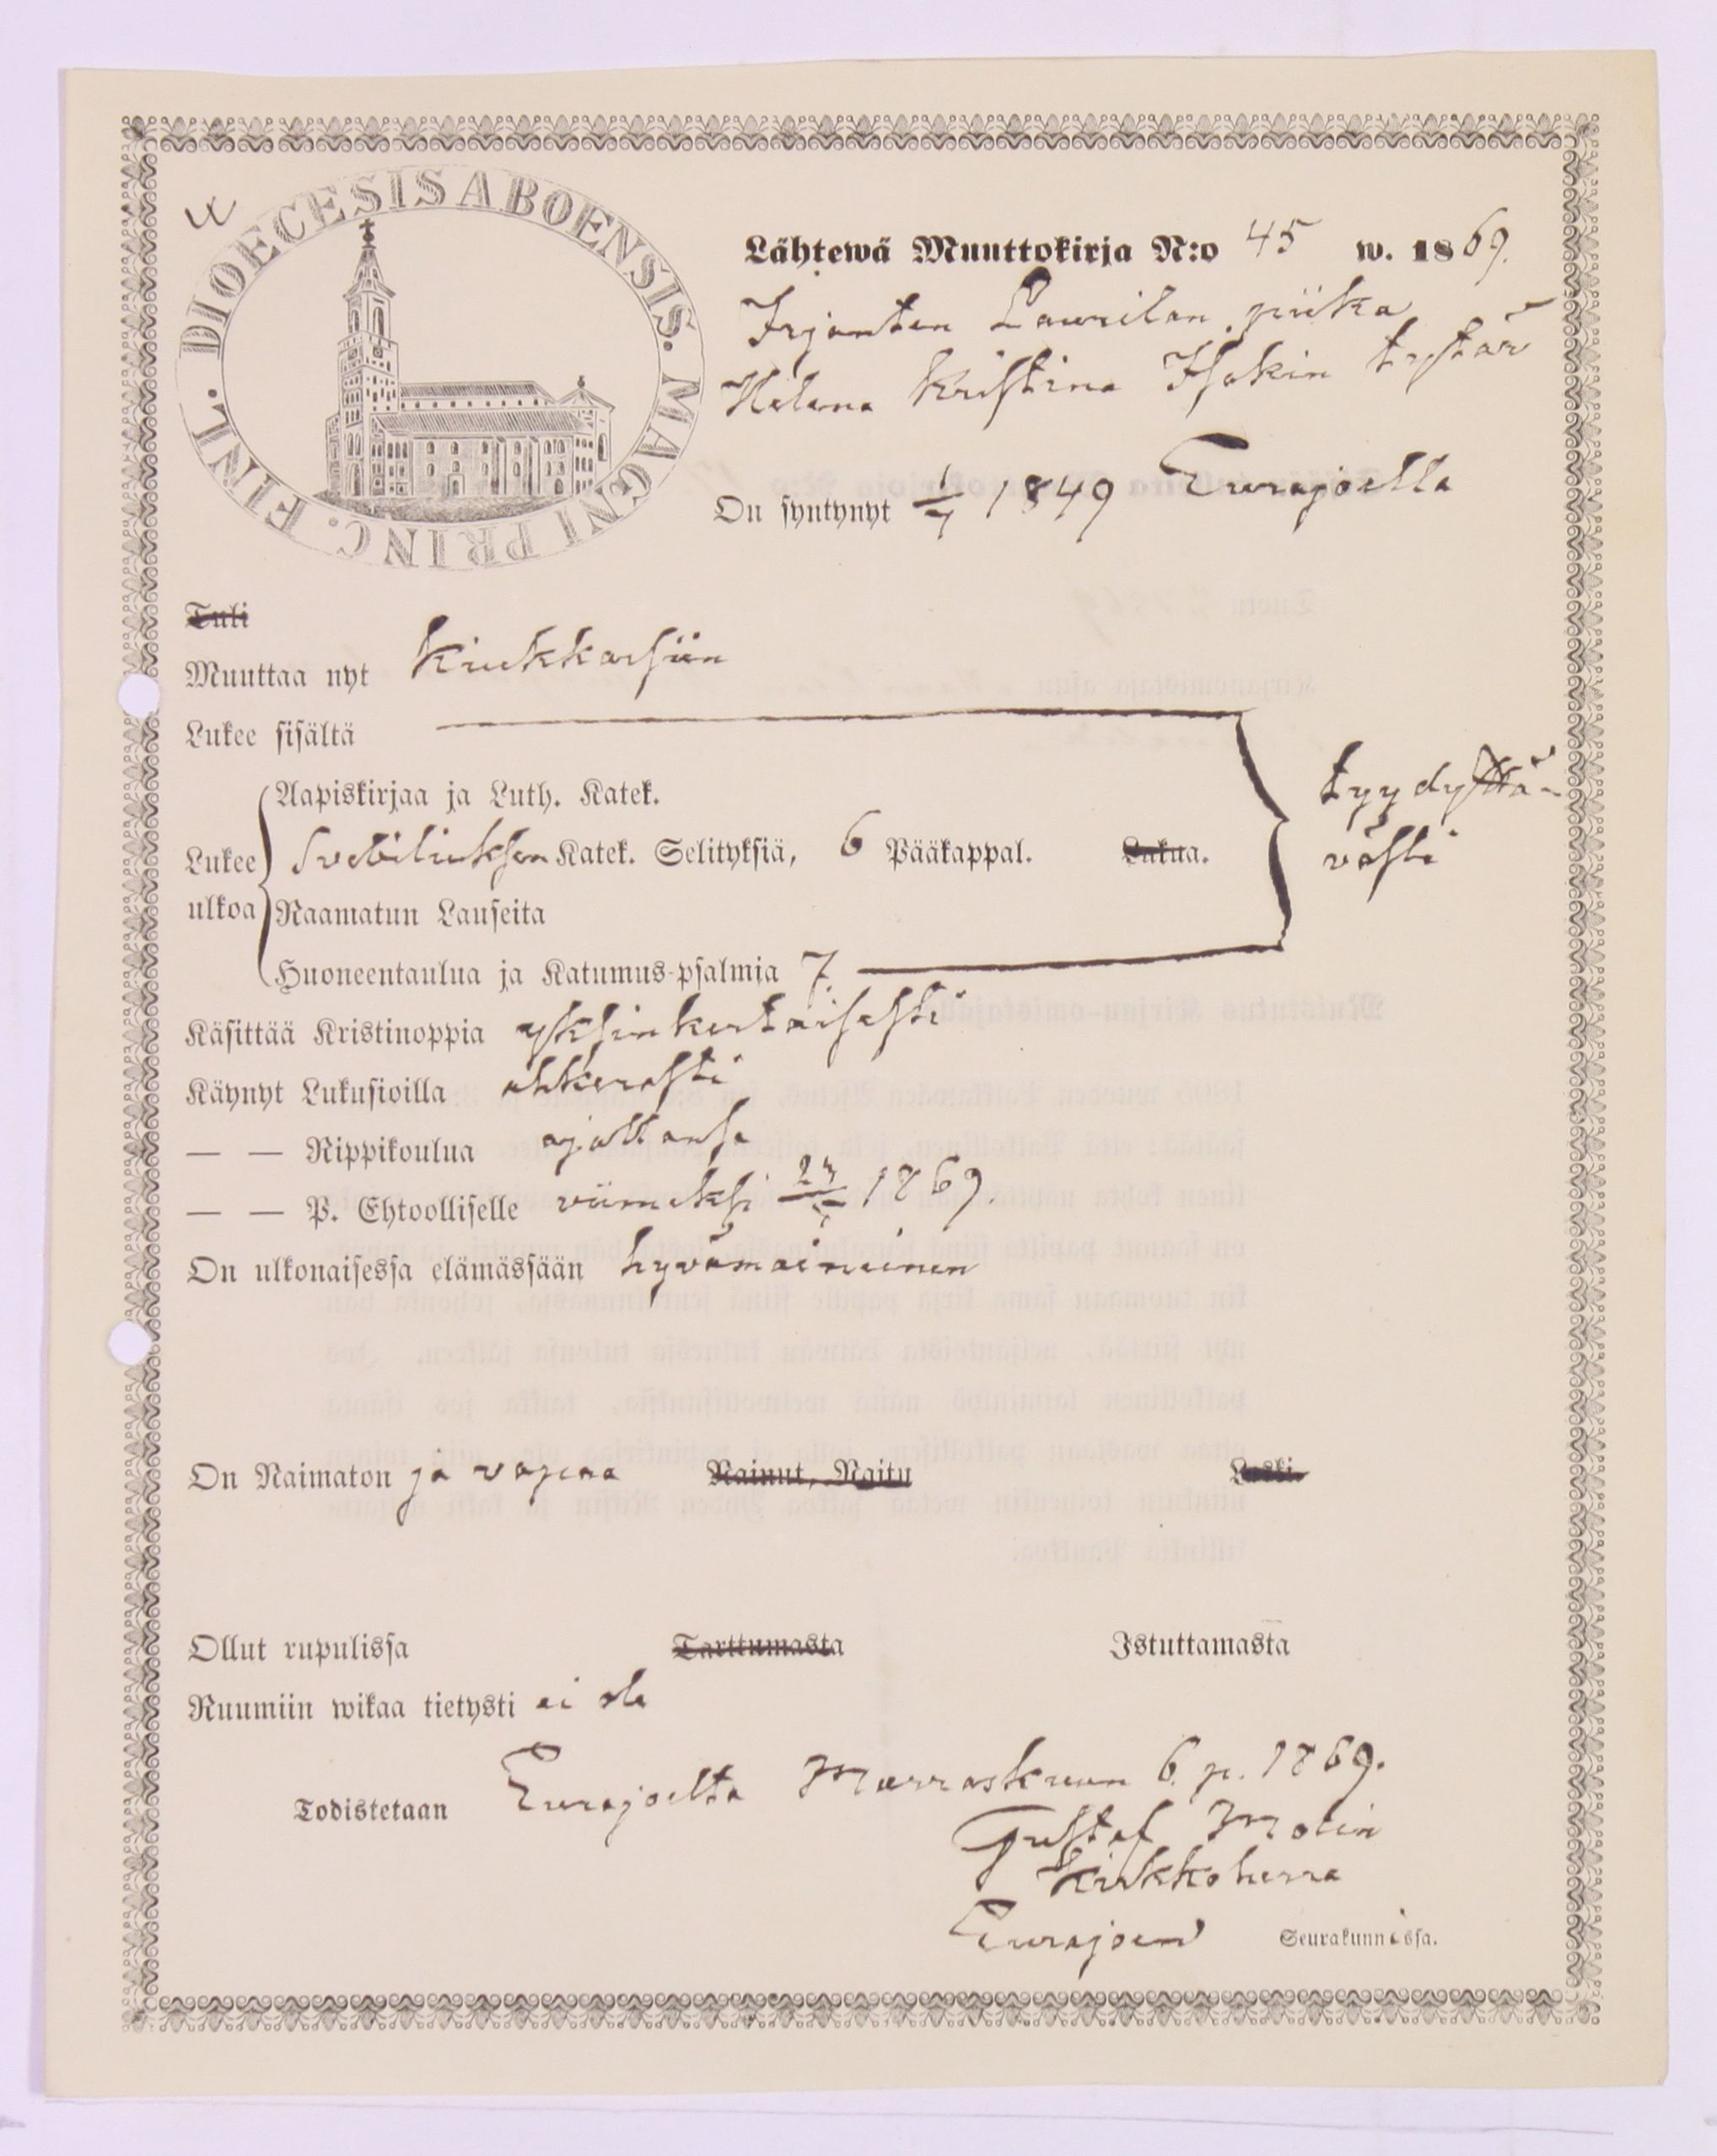 DIOECESIS ABOENSIS. MAGNI PRINC. FINL.
Lähtewä Muuttokirja N:o 45 w. 1869.
Irjanten Laurilan piika
Helena Kristina Isakin tytär
On syntynyt 1849 Eurajoella
Tuli
Muuttaa nyt Kiukkaisiin
Lukee sisältä
Aapiskirjaa ja Luth. Katek.
Lukee ulkoa Svebiliuksen Katek. Selityksiä, 6 Pääkappal. Lukua.
tyydyttä-
västi
Raamatun Lauseita
Huoneentaulua ja Katumus-psalmia 7.
Käsittää Kristinoppia yksinkertaisesti
Käynyt Lukusioilla ahkerasti
— — Rippikoulua ajallansa
— — P. Ehtoolliselle viimeksi 1869.
On ulkonaisessa elämässään hyvämaineinen
On Naimaton ja vapaa Nainut, Naitu Leski.
Ollut rupulissa Tarttumasta Istuttamasta
Ruumiin wikaa tietysti ei ole
Todistetaan Eurajoelta Marraskuun 6. p. 1869.
Gustaf Molin
Kirkkoherra
Eurajoen Seurakunnissa.